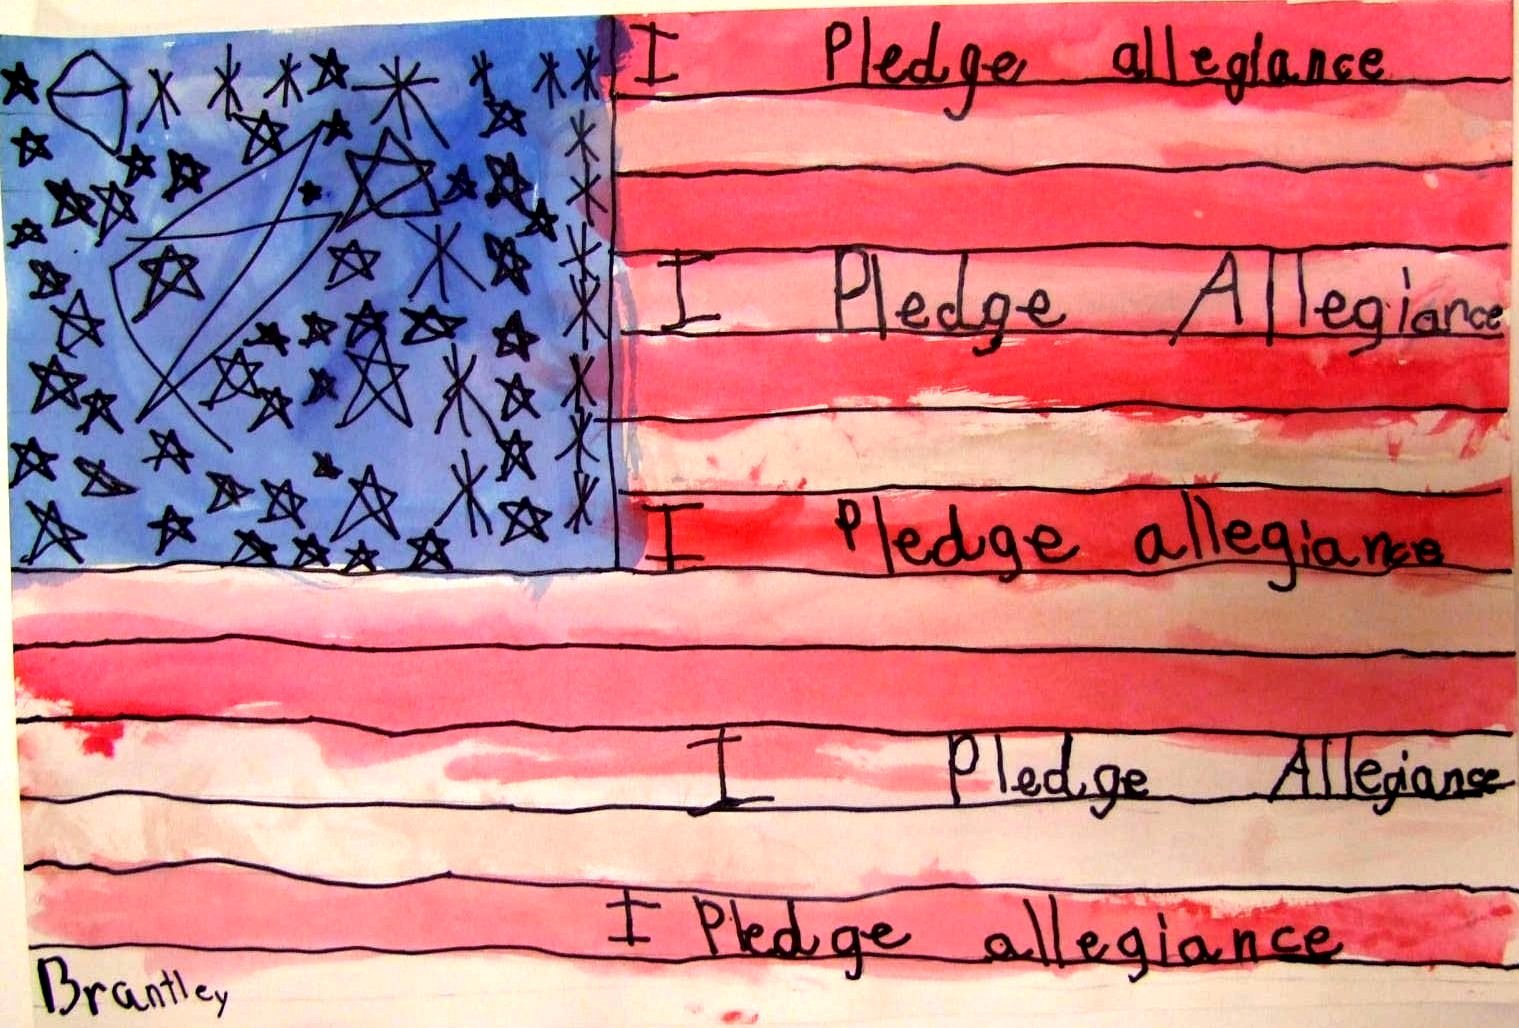 I Pledge allegiance
I Pledge Allegiance
I Pledge allegiance
I Pledge Allegiance
I Pledge allegiance
Brantley